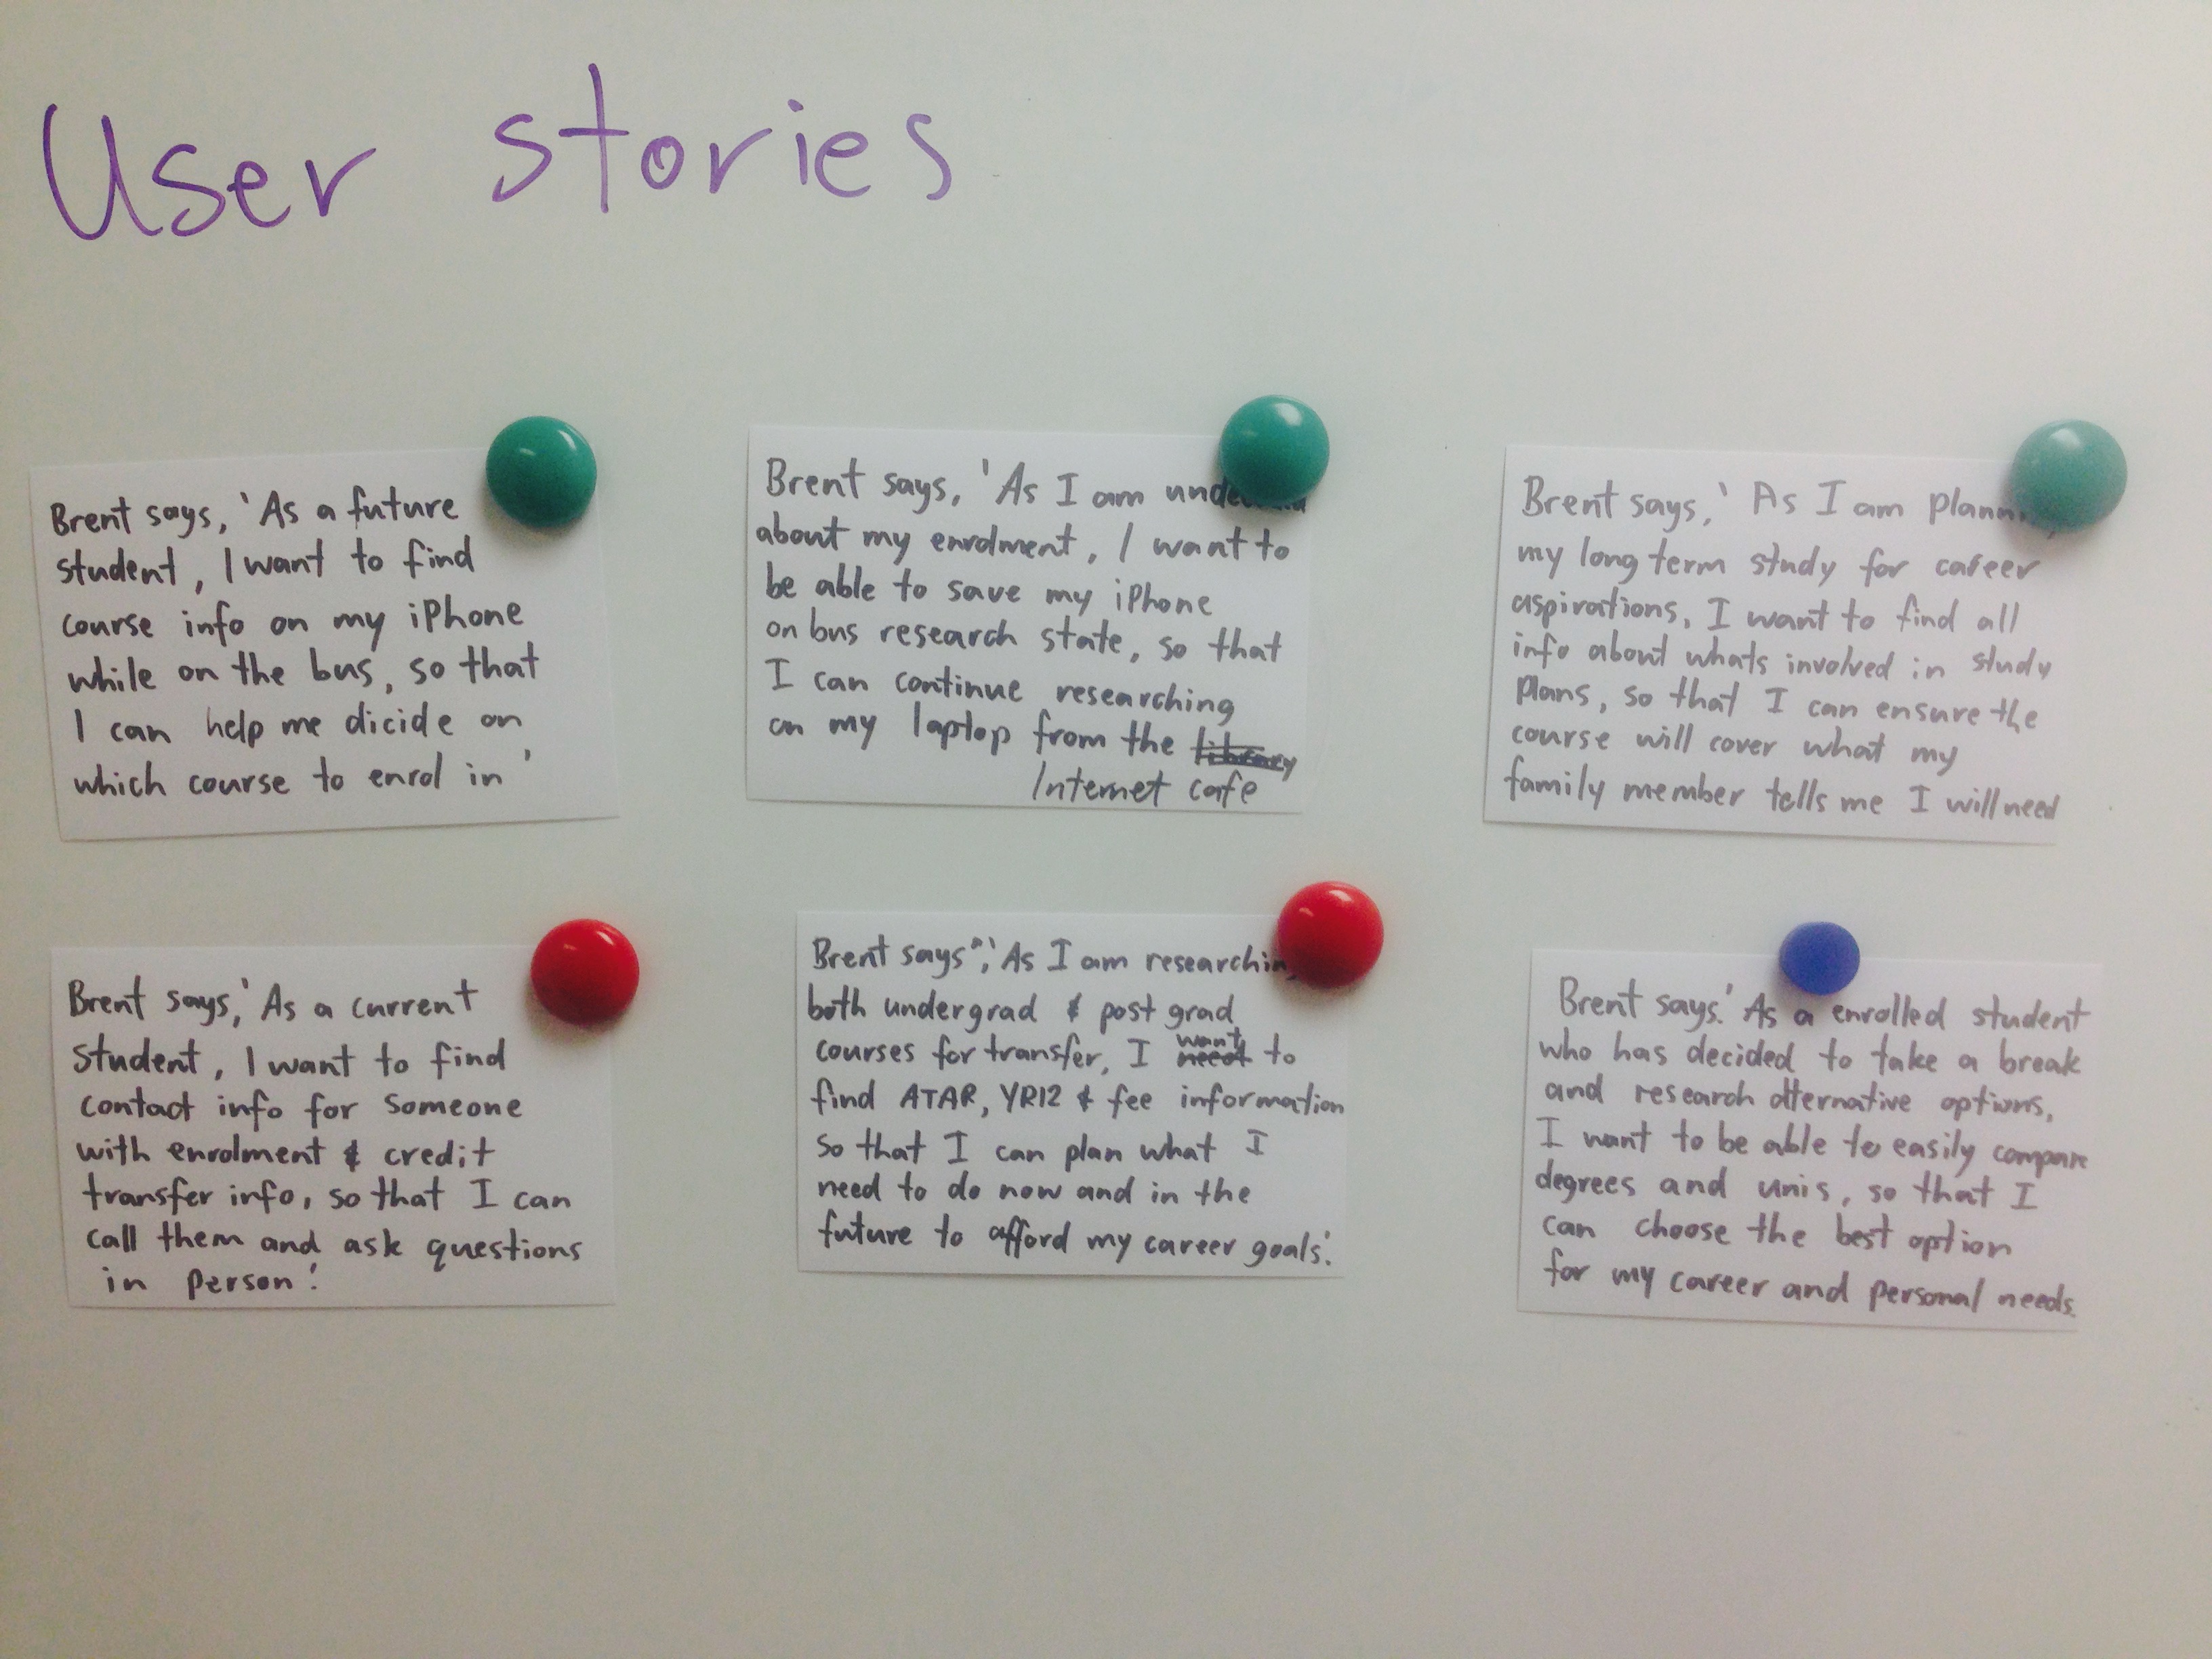 User stories
Brent says, 'As a future
student, I want to find
course info on my iPhone
while on the bus, so that
I can help me dicide on
which course to enrol in'
Brent says, 'As I am
about my enrolment, I want to
be able to save my iPhone
on bus research state, so that
I can continue researching
on my laptop from the library
Internet cafe
Brent says,' As I am planning
my long term study for career
aspirations, I want to find all
info about whats involved in study
plans, so that I can ensure the
course will cover what my
family member tells me I will need
Brent says,' As a current
student, I want to find
contact info for someone
with enrolment & credit
transfer info, so that I can
call them and ask questions
in person.'
Brent says",'As I am researching
both undergrad & post grad
want
courses for transfer, I need to
find ATAR, YR12 & fee information
so that I can plan what I
need to do now and in the
future to afford my career goals.'
Brent says.' As a enrolled student
who has decided to take a break
and research alternative options,
I want to be able to easily compare
degrees and unis, so that I
can choose the best option
for my career and personal needs.